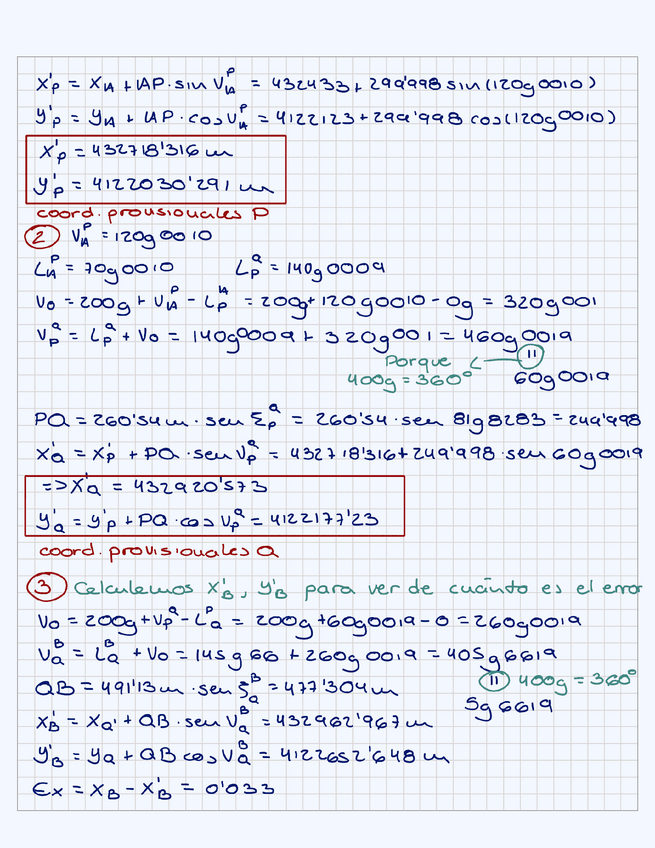 X'p = XA + AP·sin VAᴾ = 432433 + 299'998 sin (120g0010)
y'p = yA + AP·cos VAᴾ = 4122123 + 299'998 cos(120g0010)
X'p = 432718'316 m
y'p = 4122030'291 m
coord. provisionales P
2 VAᴾ = 120g0010
LAᴾ = 70g0010 LPᵃ = 140g0009
Vo = 200g + VAᴾ - LPᴬ = 200g + 120g0010 - 0g = 320g001
VPᵃ = LPᵃ + Vo = 140g0009 + 320g001 = 460g0019
Porque
400g = 360° 60g0019
PQ = 260'54 m · sen ΣPᵃ = 260'54 · sen 81g8283 = 249'998
X'a = X'p + PQ · sen VPᵃ = 432718'316 + 249'998 · sen 60g0019
=> X'a = 432920'573
y'a = y'p + PQ · cos VPᵃ = 4122177'23
coord. provisionales Q
3 Calculemos X'B, y'B para ver de cuánto es el error
Vo = 200g + VPᵃ - Laᴾ = 200g + 60g0019 - 0 = 260g0019
Vaᴮ = Laᴮ + Vo = 145g66 + 260g0019 = 405g6619
400g = 360°
QB = 491'13 m · sen ξaᴮ = 477'304 m
5g6619
X'B = Xa' + QB · sen Vaᴮ = 432962'967 m
y'B = ya + QB cos Vaᴮ = 4122652'648 m
Ex = XB - X'B = 0'033